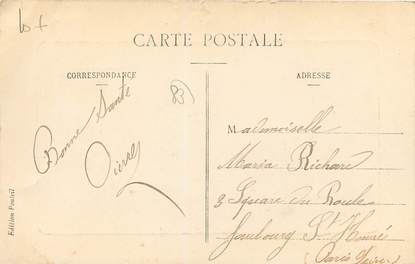 10 f
CARTE POSTALE
CORRESPONDANCE
ADRESSE
83
Bonne Santé
Pierre
Mademoiselle
Maria Richard
3 Square du Roule
faubourg St Honoré
(Paris
Edition Pouteil